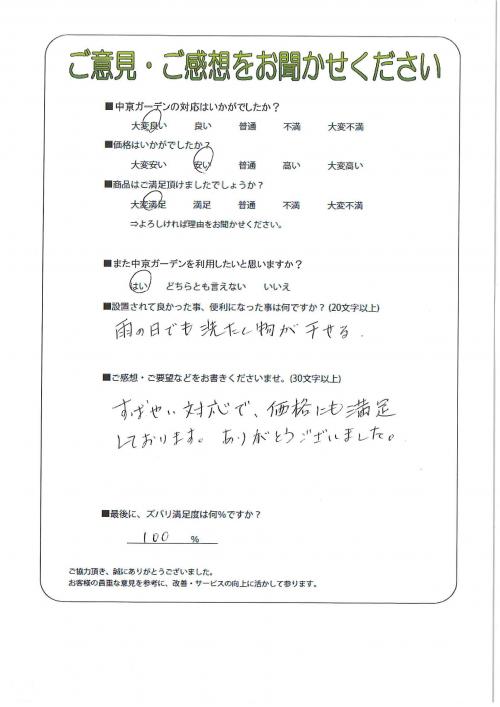 ご意見・ご感想をお聞かせください
■中京ガーデンの対応はいかがでしたか？
大変良い 良い 普通 不満 大変不満
■価格はいかがでしたか？
大変安い 安い 普通 高い 大変高い
■商品はご満足頂けましたでしょうか？
大変満足 満足 普通 不満 大変不満
⇒よろしければ理由をお聞かせください。
■また中京ガーデンを利用したいと思いますか？
はい どちらとも言えない いいえ
■設置されて良かった事、便利になった事は何ですか？(20文字以上)
雨の日でも洗たく物が干せる.
■ご感想・ご要望などをお書きくださいませ。(30文字以上)
すばやい対応で、価格にも満足
しております。ありがとうございました。
■最後に、ズバリ満足度は何％ですか？
100 %
ご協力頂き、誠にありがとうございました。
お客様の貴重な意見を参考に、改善・サービスの向上に活かして参ります。